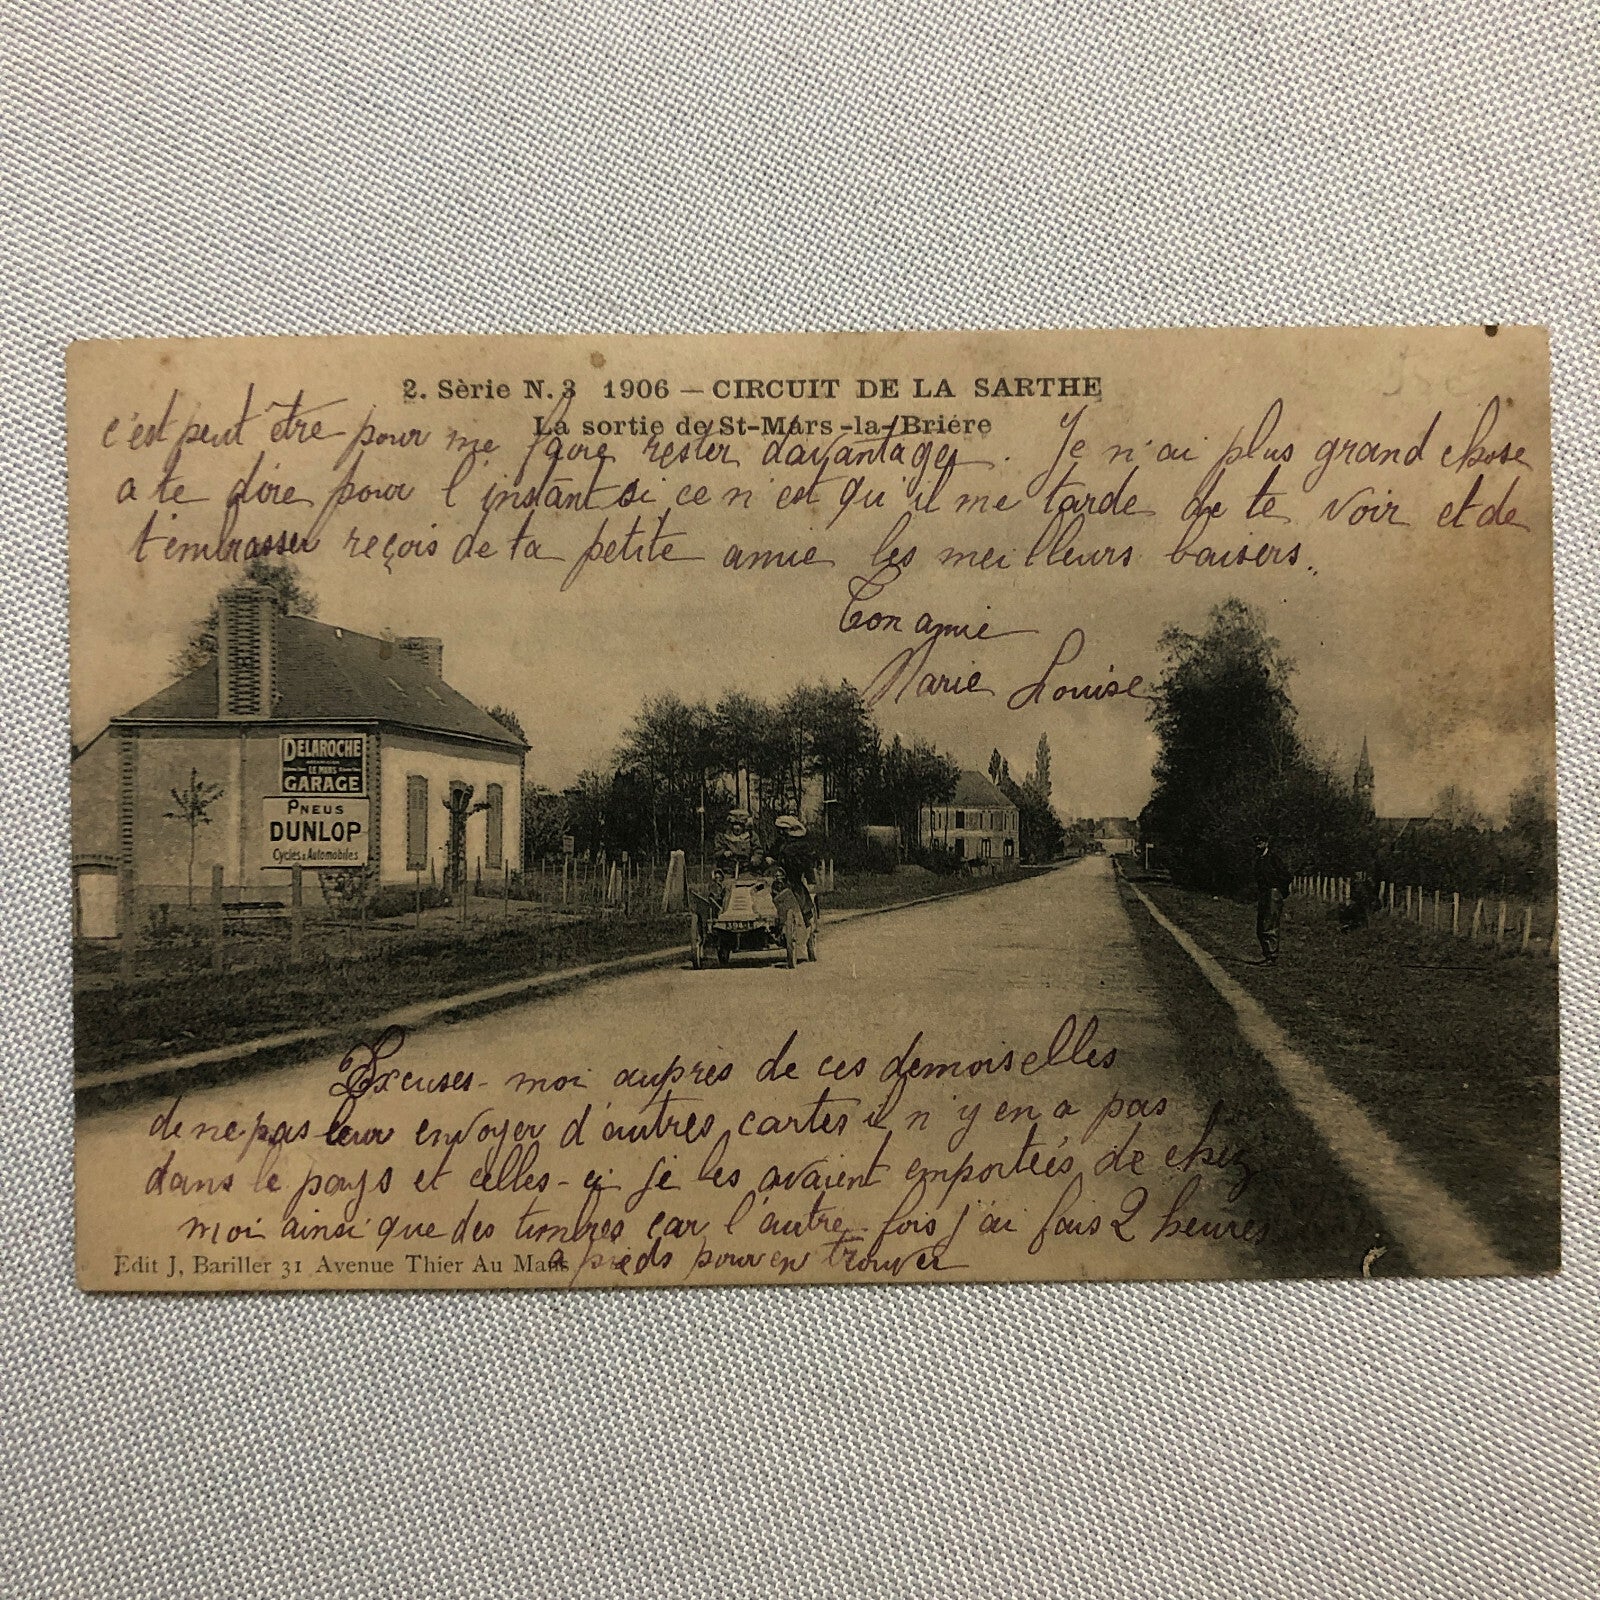 2. Sèrie N. 3 1906 — CIRCUIT DE LA SARTHE
La sortie de St-Mars-la-Briére
c'est peut être pour me faire rester davantage. Je n'ai plus grand chose
a te dire pour l'instant si ce n'est qu'il me tarde de te voir et de
t'embrasser reçois de ta petite amie les meilleurs baisers..
Ton amie
Marie Louise
DELAROCHE
LE MANS
GARAGE
PNEUS
DUNLOP
Cycles & Automobiles
394-L
Excuses-moi auprès de ces demoiselles
de ne pas leur envoyer d'autres cartes il n'y en a pas
dans le pays et celles-ci je les avaient emporteés de chez
moi ainsi que des timbres car l'autre fois j'ai fais 2 heures
a pieds pour en trouver
Edit J, Bariller 31 Avenue Thier Au Mans